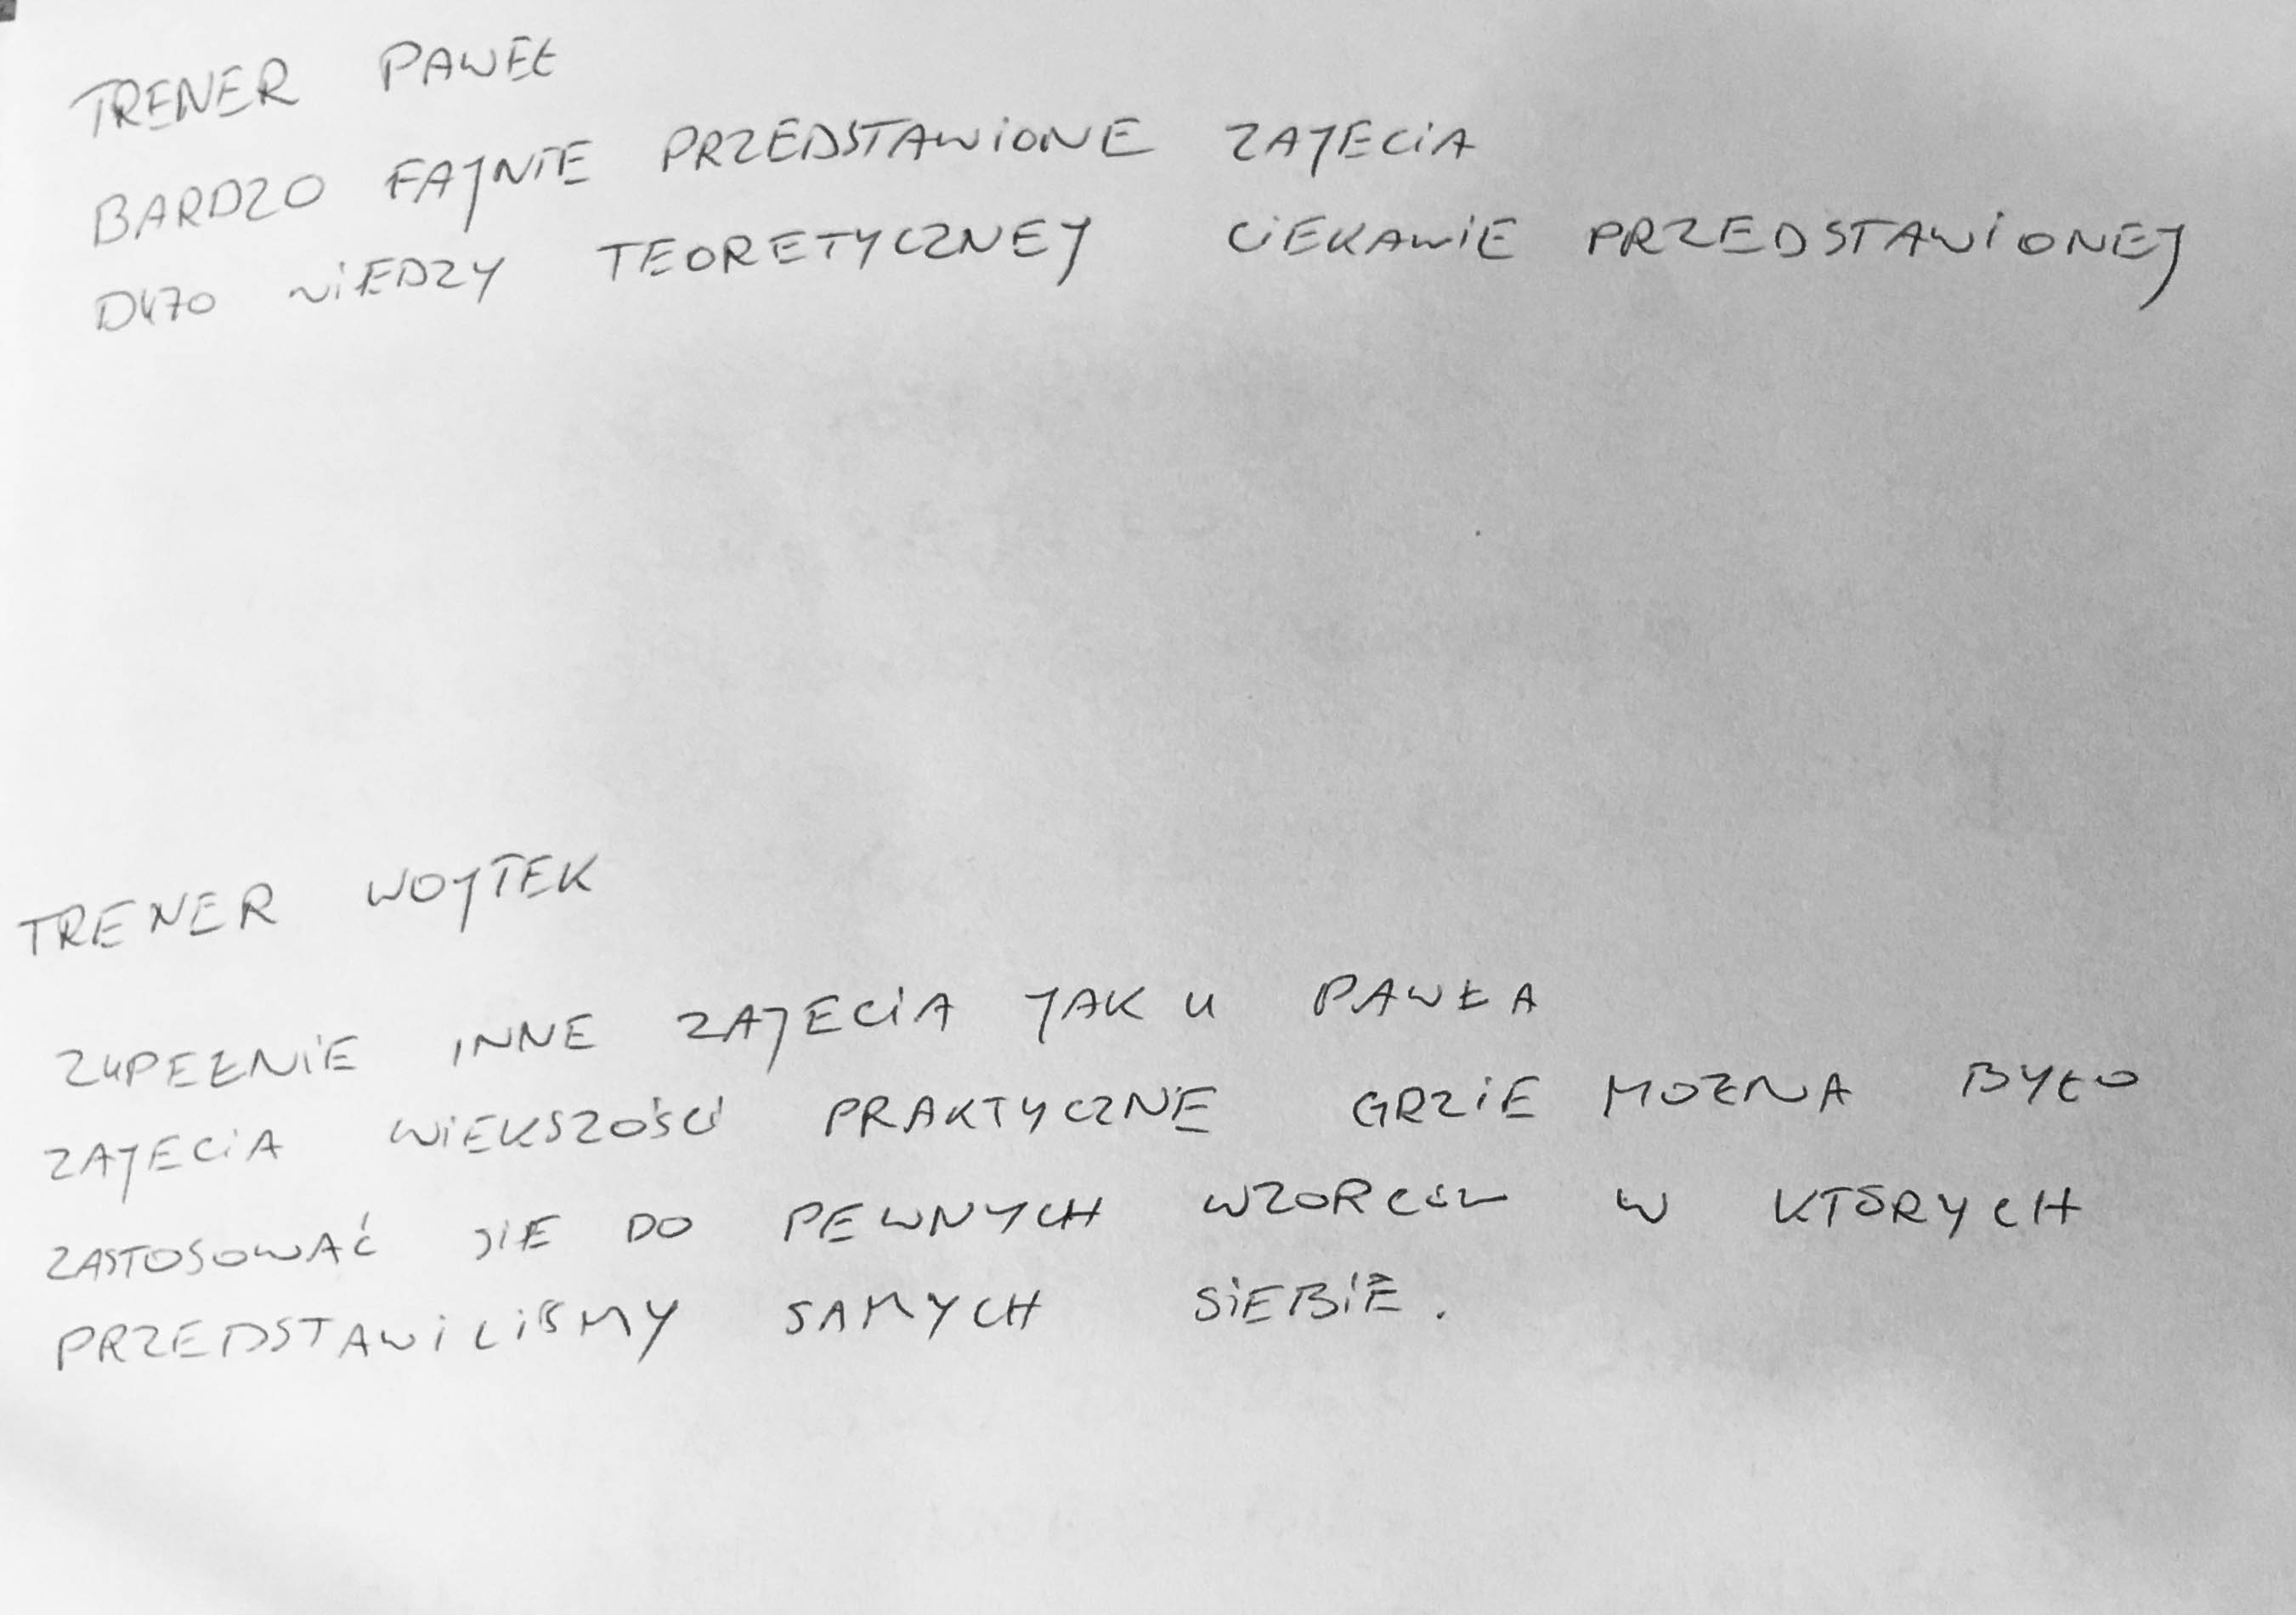 TRENER PAWEŁ
BARDZO FAJNIE PRZEDSTAWIONE ZAJECIA
DUZO WIEDZY TEORETYCZNEJ CIEKAWIE PRZEDSTAWIONEJ
TRENER WOJTEK
ZUPEŁNIE INNE ZAJECIA JAK U PAWŁA
ZAJECIA WIEKSZOŚCI PRAKTYCZNE GDZIE MOZNA BYŁO
ZASTOSOWAĆ SIE DO PEWNYCH WZORCÓW W KTÓRYCH
PRZEDSTAWILIŚMY SAMYCH SIEBIE.